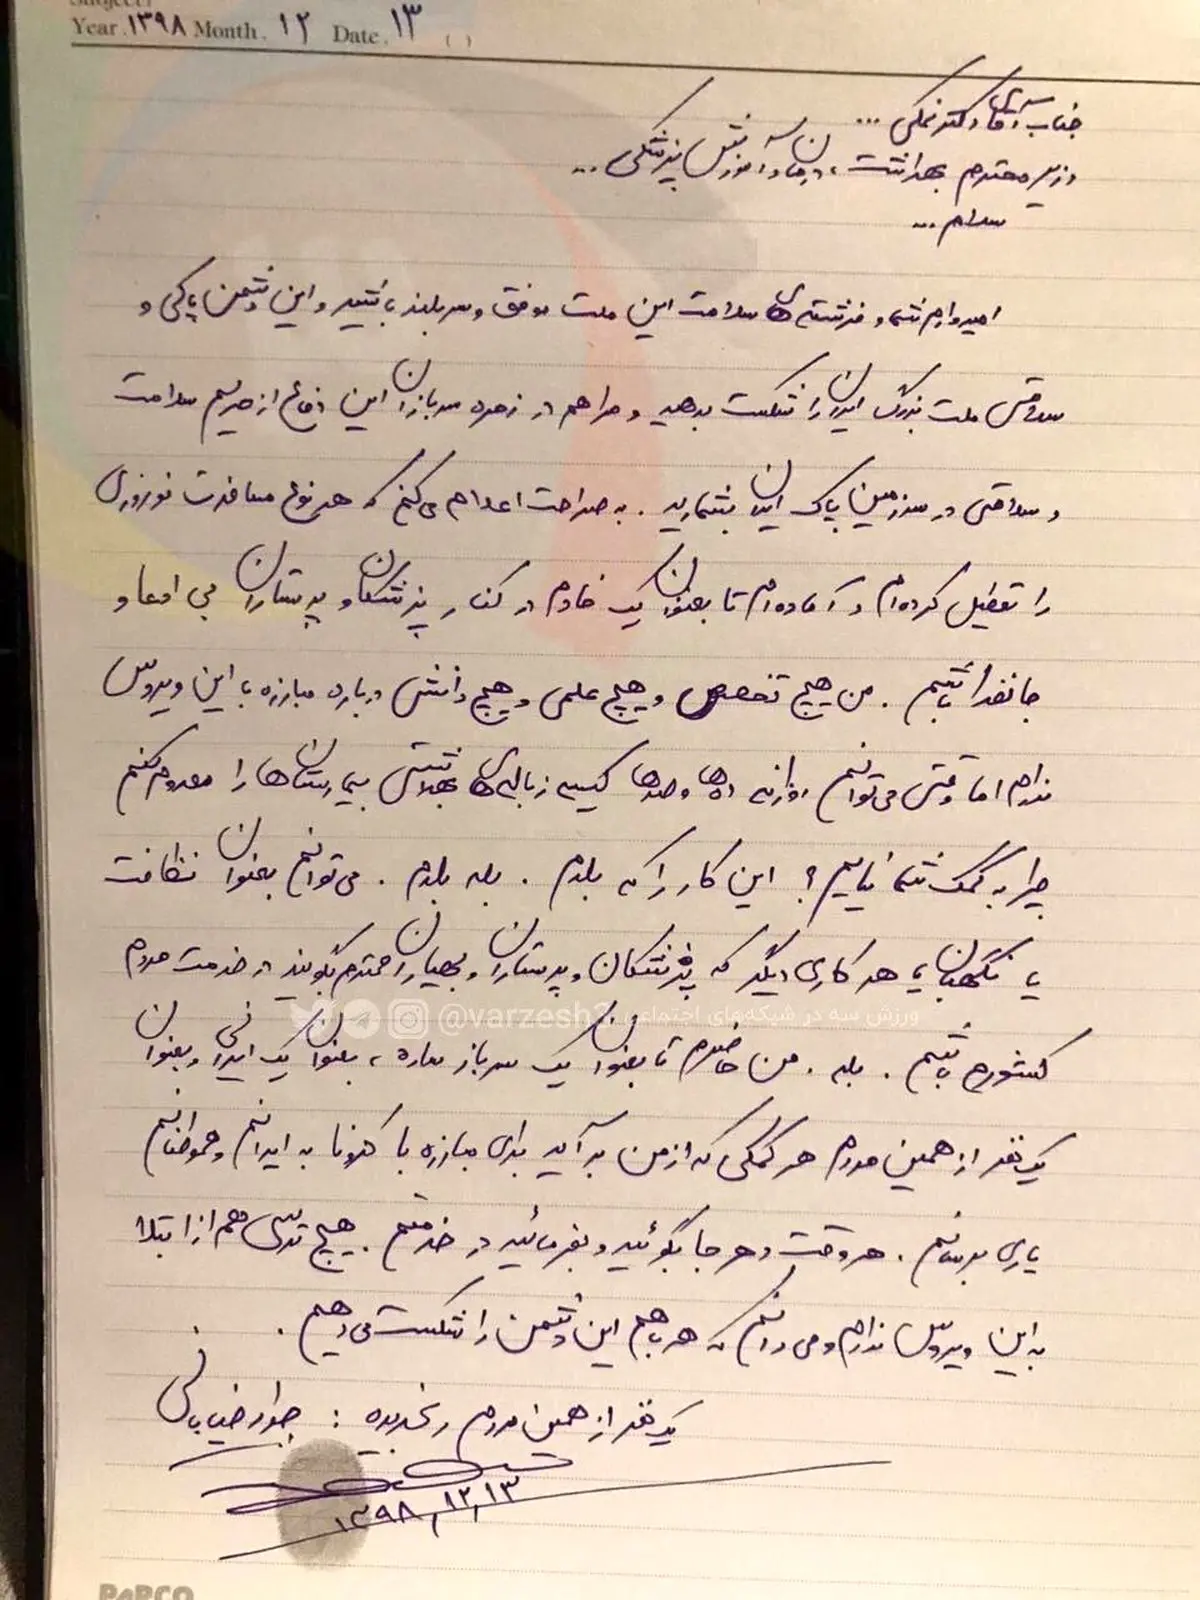 Subject:
Year. ۱۳۹۸ Month. ۱۲ Date. ۱۳ ( )
جناب آقای دکتر نمکی ...
وزیر محترم بهداشت، درمان و آموزش پزشکی ...
سلام ...
امیدوارم شما و فرشته‌های سلامت این ملت موفق و سربلند باشید و این دشمن پاکی و
سلامتی ملت بزرگ ایران را شکست بدهید و مرا هم در زمره سربازان این دفاع از حریم سلامت
و سلامتی در سرزمین پاک ایران بشمارید. به صراحت اعلام می‌کنم که هر نوع مسافرت نوروزی
را تعطیل کرده‌ام و آماده‌ام تا بعنوان یک خادم در کنار پزشکان و پرستاران بی ادعا و
جانفدا باشم. من هیچ تخصص و هیچ علمی و هیچ دانشی درباره مبارزه با این ویروس
ندارم اما وقتی می‌توانم روزانه ده‌ها و صدها کیسه زباله‌های بهداشتی بیمارستان‌ها را معدوم کنم
چرا به کمک شما نیایم؟ این کار را که بلدم. بله بلدم. می‌توانم بعنوان نظافت
یا نگهبان یا هر کاری دیگر که پزشکان و پرستاران و بهیاران محترم بگویند در خدمت مردم
ورزش سه در شبکه‌های اجتماعی @varzesh3
کشورم باشم. بله. من حاضرم تا بعنوان یک سرباز ساده، بعنوان یک ایرانی و بعنوان
یک نفر از همین مردم هر کمکی که از من برآید برای مبارزه با کرونا به ایرانم و هموطنانم
یاری برسانم. هر وقت و هر جا بگوئید و بفرمائید در خدمتم. هیچ ترسی هم از ابتلا
به این ویروس ندارم و می‌دانم که همه باهم این دشمن را شکست می‌دهیم.
یک نفر از همین مردم رنجدیده: جواد خیابانی
۱۳۹۸,۱۲,۱۳
PAPCO